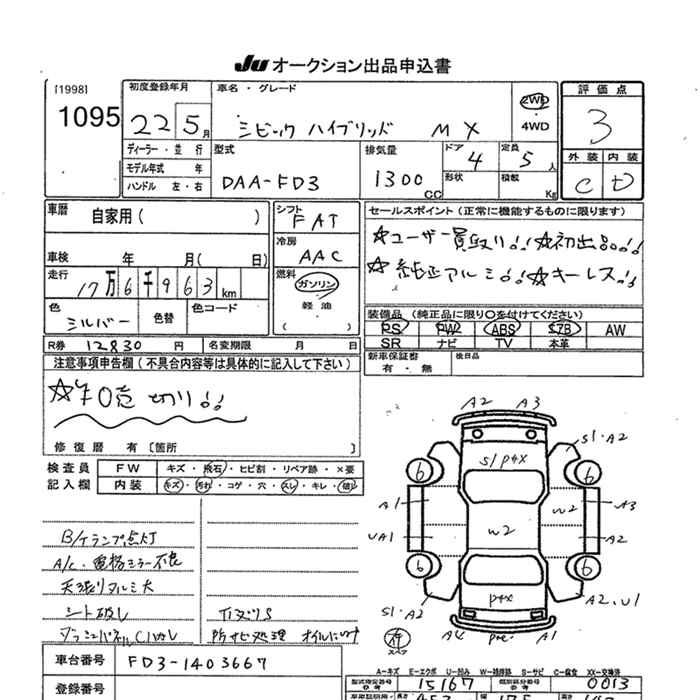 JU オークション出品申込書
[1998]
1095
初度登録年月
22 5月
車名・グレード
シビック ハイブリッド MX
2WD
・4WD
評価点
3
外装 内装
C D
ディーラー・並行
モデル年式 年
ハンドル 左・右
型式
DAA-FD3
排気量
1300cc
ドア
4
定員
5人
形状
積載
Kg
車歴
自家用( )
車検 年 月( 日)
走行
17万6千963km
色
シルバー
色替
色コード
シフト
FAT
冷房
AAC
燃料
ガソリン
軽油
( )
セールスポイント(正常に機能するものに限ります)
☆ユーザー買取り!! ☆初出品!!!
☆純正アルミ!! ☆キーレス!!
装備品(純正品に限り○を付けてください)
PS PW ABS エアB AW
SR ナビ TV 本革
R券 12830 円 名変期限 月 日
新車保証書
有・無
後日品
注意事項申告欄(不具合内容等は具体的に記入して下さい)
切り!!
修復歴 有〔箇所 〕
検査員
記入欄
FW キズ・飛石・ヒビ割・リペア跡・×要
内装 キズ・汚れ・コゲ・穴・スレ・キレ・破レ
B/ケランプ点灯
A/C・電格ミラー不良
天張りタルミ大
シート破レ
ダッシュパネルC1カレ
下廻りS
防サビ処理 オイルにじみ
A2 A3
S1・A2
S1 P4X
6 6
A1 W2 A3
UA1 W2 A2
6 6
P4X
S1・A2 A2、U1
A4 A1
スペア
車台番号 FD3-1403667
登録番号
A-キズ E-エクボ U-凹み W-補修跡 S-サビ C-腐食 XX-交換済
型式指定番号 15167 類別区分番号 0013